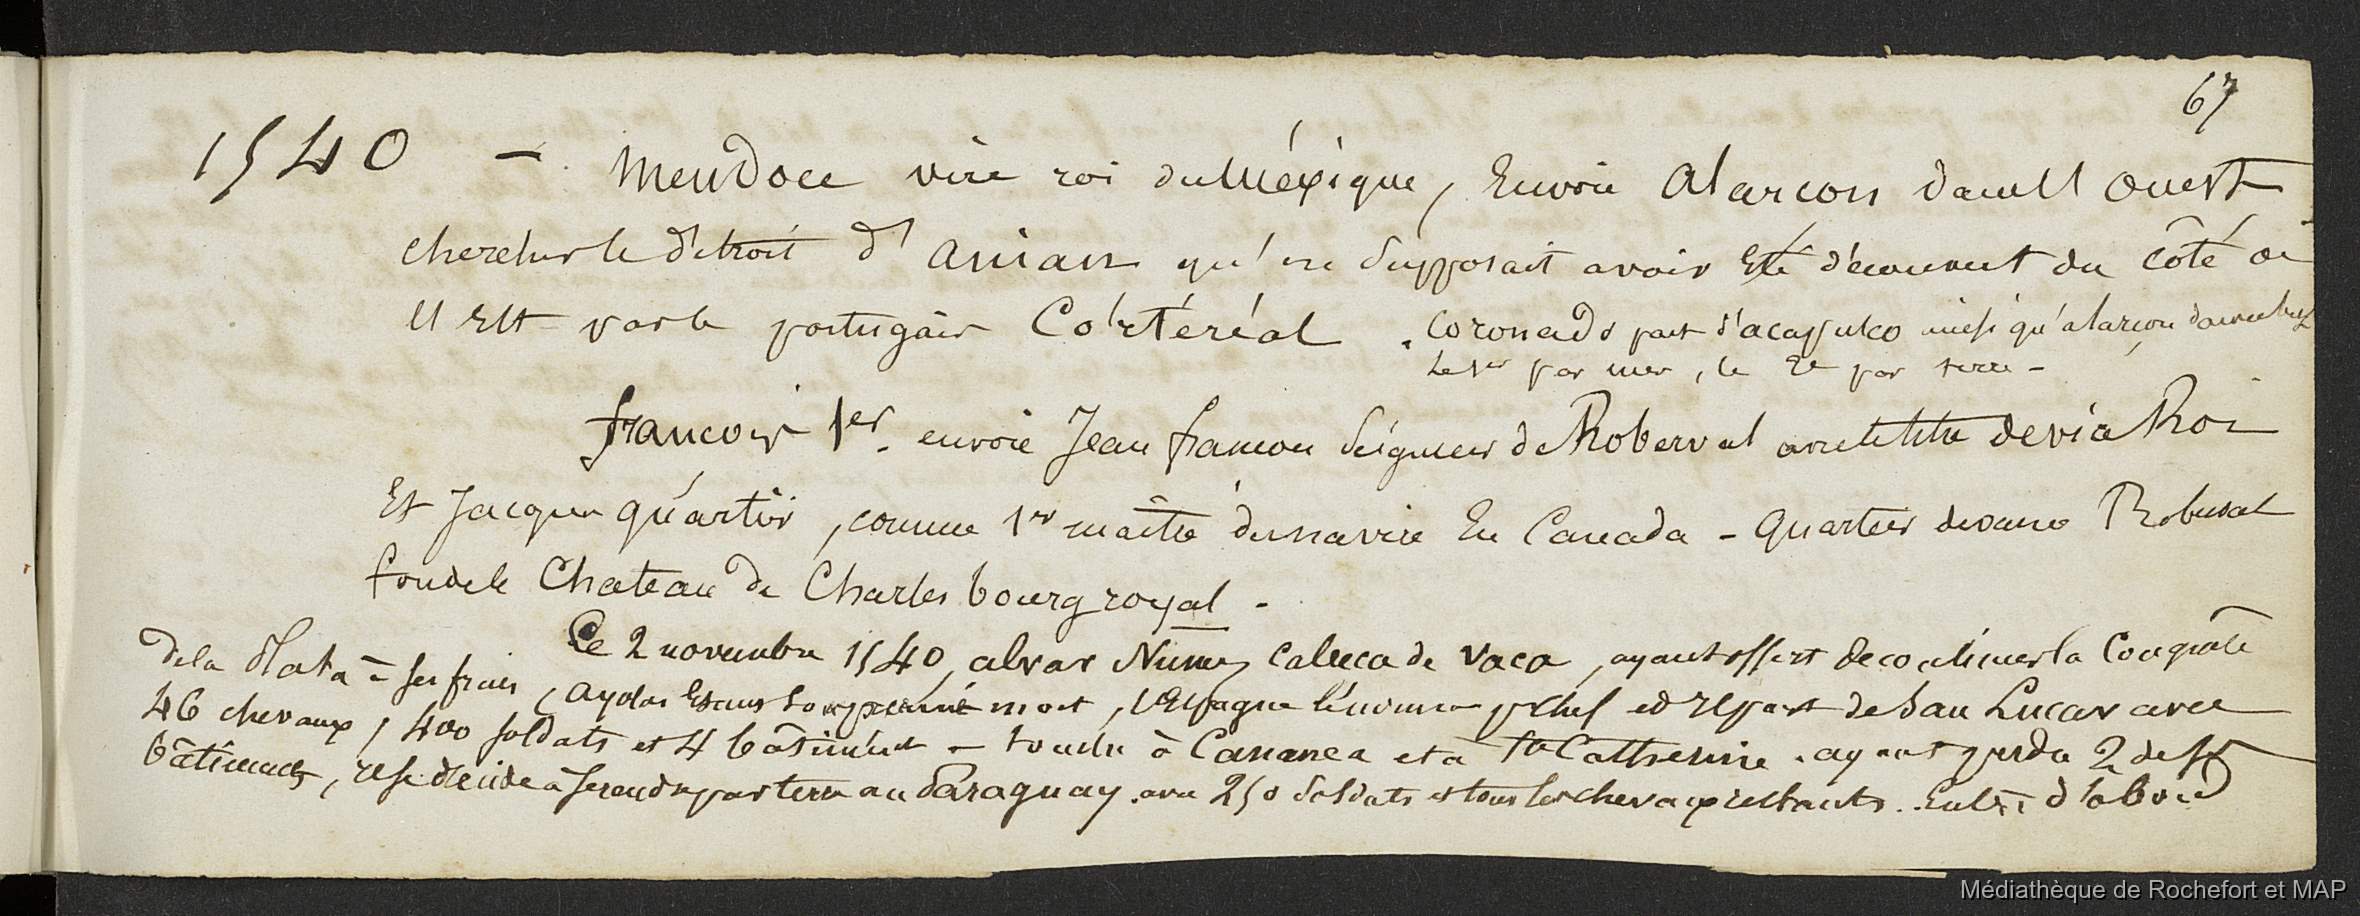 67
1540 - Mendoce vice roi du Méxique, Envoie Alarcon dans l'Ouest
chercher le détroit d'Anian qu'on supposait avoir Eté découvert du côté où
il Est par le portugais Cortéréal . Coronado part d'acapulco ainsi qu'alarcon
le 1er par mer, le 2e par terre -
francois 1er. envoie Jean francois Seigneur de Roberval avec le titre de vice Roi
Et Jacques Quartier, comme 1er maître de navire En Canada - Quartier devance Roberval
fonde le Chateau de Charles bourg royal -
Le 2 novembre 1540, alvar Nunez Cabeca de Vaca, ayant offert de continuer la Conquête
de la Plata à ses frais, Ayolas Etant mort, l'Espagne le nomme chef et il part de San Lucar avec
46 chevaux, 400 soldats et 4 bâtiments - touche à Cananea et à Ste Catherine . ayant perdu 2 de ses
bâtiments, se décide à se rendre par terre au Paraguay . avec 250 Soldats et tous les chevaux restants . d'abord
Médiathèque de Rochefort et MAP